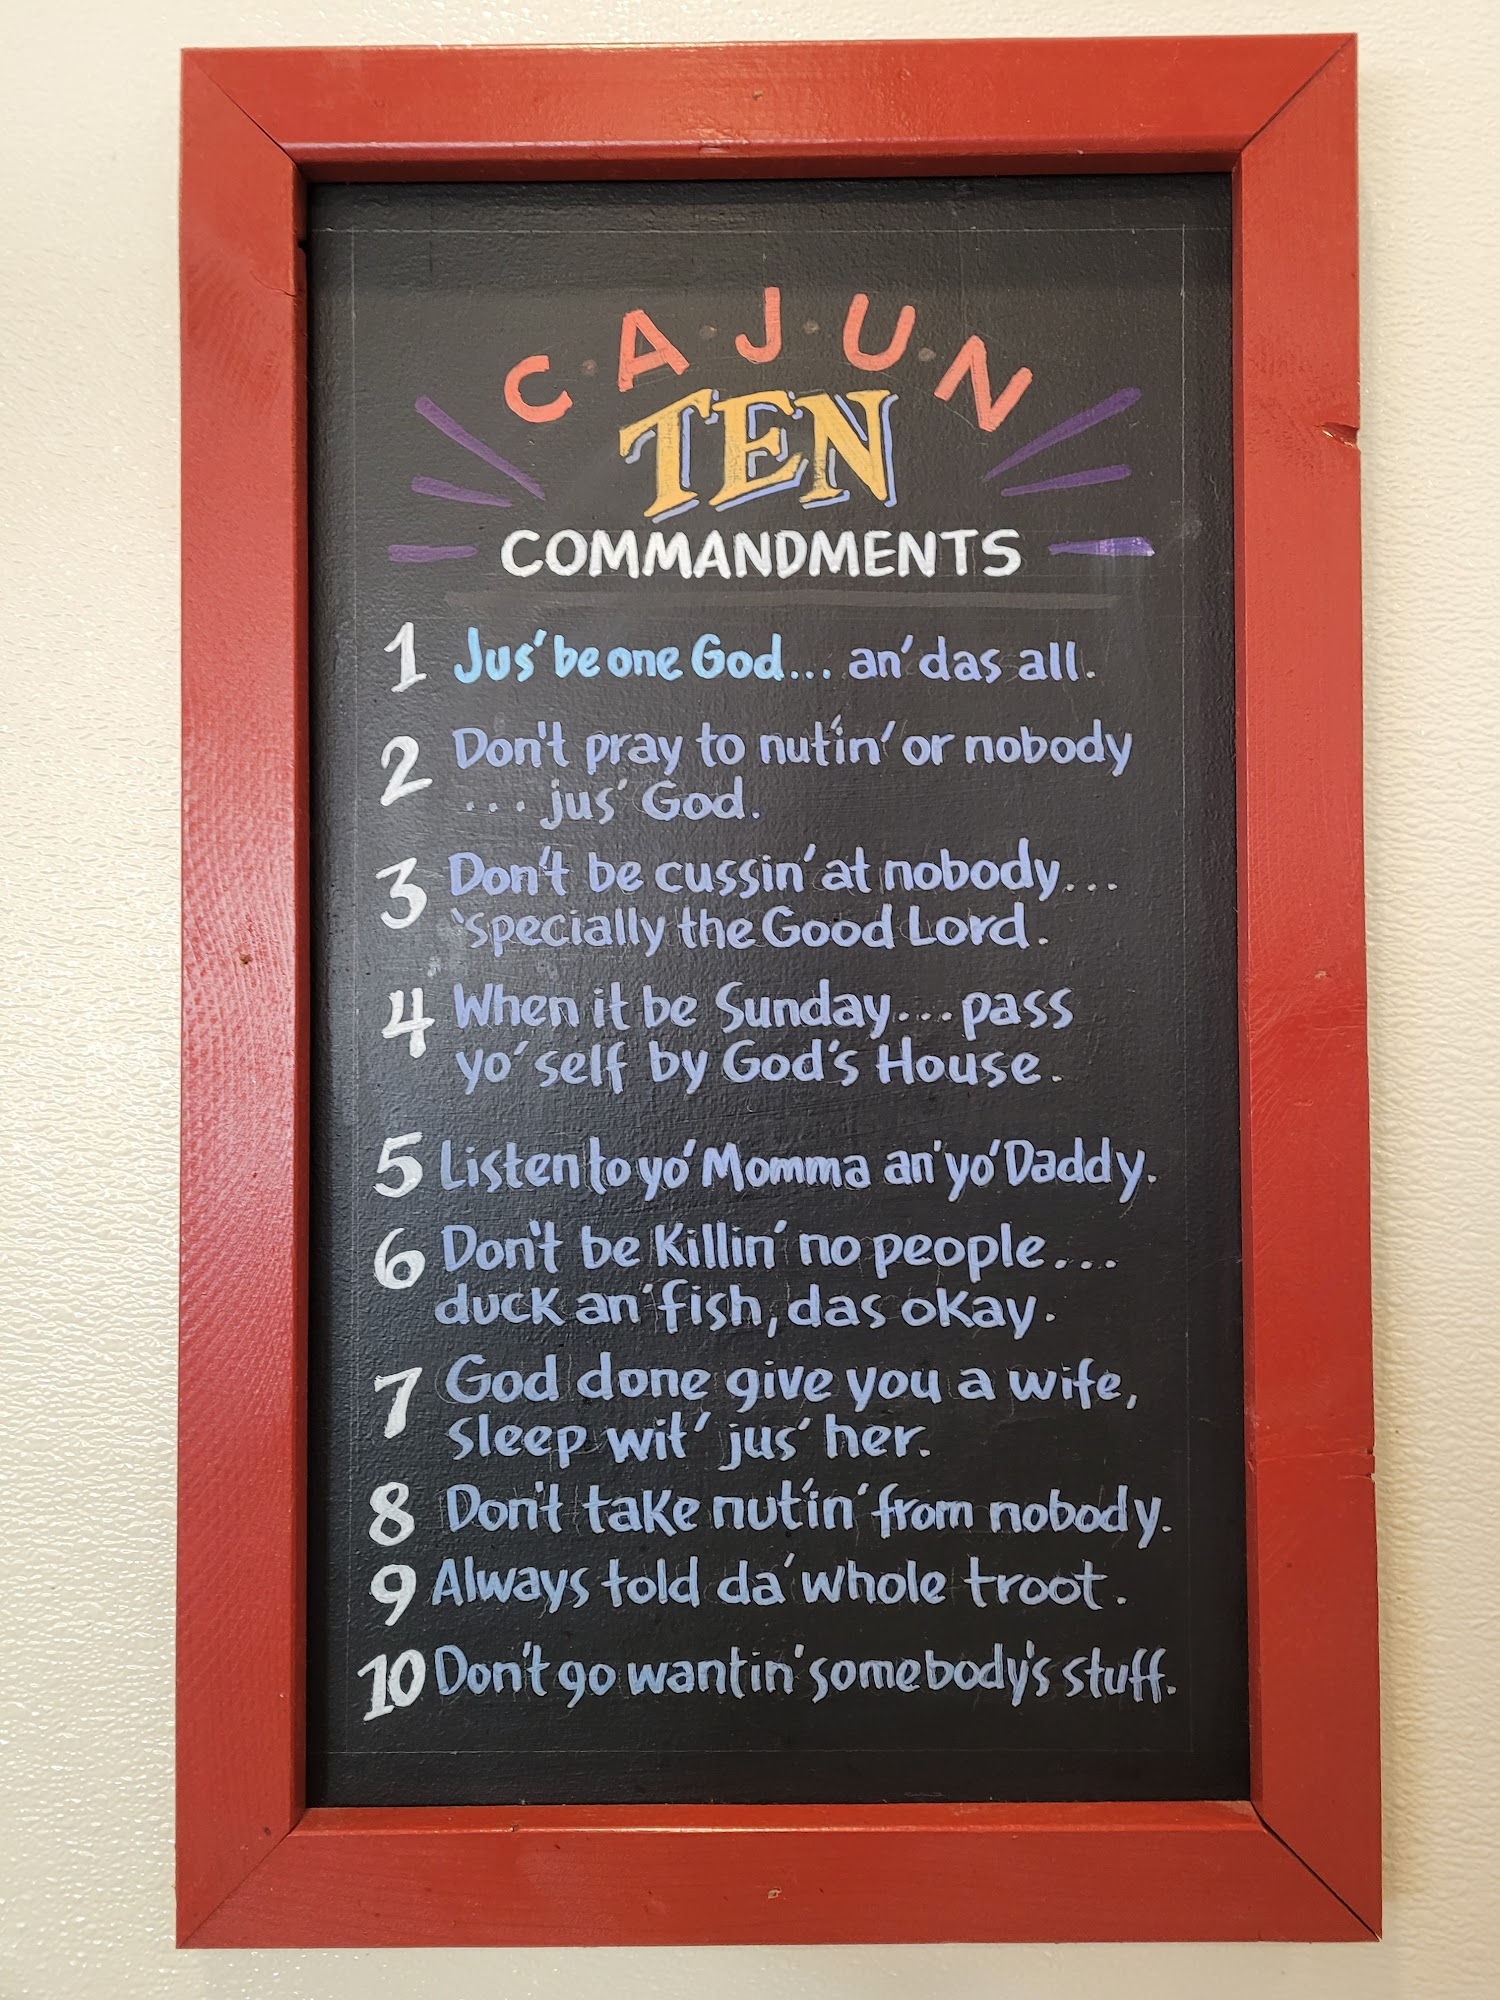 CAJUN
TEN
COMMANDMENTS
1 Jus' be one God... an' das all.
2 Don't pray to nut'in' or nobody
... jus' God.
3 Don't be cussin' at nobody...
'specially the Good Lord.
4 When it be Sunday... pass
yo' self by God's House.
5 Listen to yo' Momma an' yo' Daddy.
6 Don't be killin' no people...
duck an' fish, das okay.
7 God done give you a wife,
sleep wit' jus' her.
8 Don't take nut'in' from nobody.
9 Always told da' whole troot.
10 Don't go wantin' somebody's stuff.